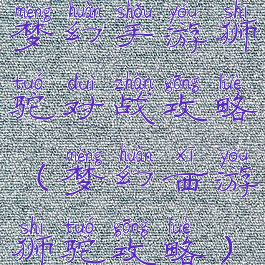 mèng huàn shǒu yóu shī
梦幻手游狮
tuó duì zhàn gōng lüè
驼对战攻略
mèng huàn xī yóu
（梦幻西游
shī tuó gōng lüè
狮驼攻略）